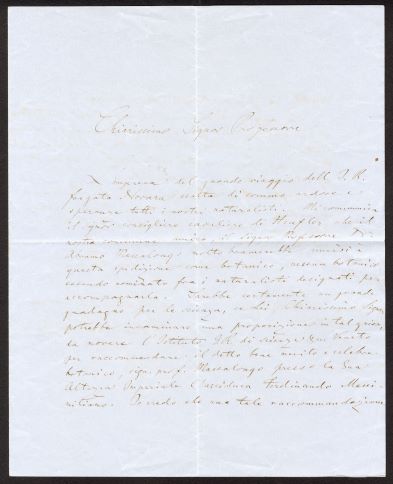 Chiarissimo Signor Professore
L'impresa del grande viaggio dell' I. R.
fregata Novara esalta di sommo ardore e
speranze tutti i nostri naturalisti. Mi communica
il signor consigliere cavaliere de Heufler che il
nostro commune amico, il Signor Professore
Massalongo molto bramerebbe unirsi a
questa spedizione come botanico, nessun botanico
essendo nominato fra i naturalisti designati per
accompagnarla. Sarebbe certamente un grande
guadagno per la scienza, se Lei, Chiarissimo Signor,
potrebbe incaminare una proposizione in tal guisa,
da movere l'Istituto I. R. di scienze
per raccommandare il dotto bene merito e celebre
botanico, sign. prof. Massalongo presso la Sua
Altezza Imperiale l'arciduca Ferdinando Massi-
miliano. Io credo che una tale raccommandazione